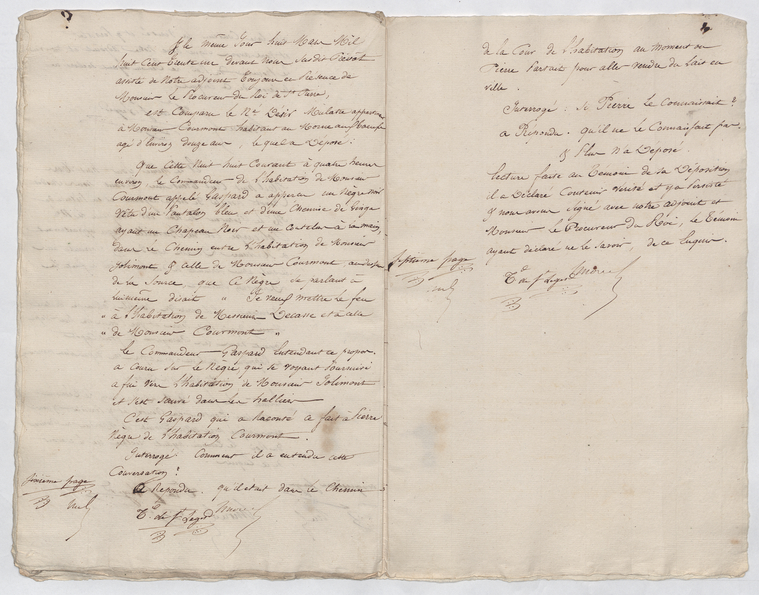 Et le même Jour huit Mars Mil
huit Cent trente un devant Nous Susdit
assisté de Notre adjoint Toujours en Présence de
Monsieur le Procureur du Roi de St Pierre,
est Comparu le Né Désir Mulatre appartenant
à Monsieur Courmont habitant au Morne
agé d'environ douze ans, lequel a Déposé :
Que cette Nuit huit Courant à quatre heures
environ le Commandeur de l'habitation de Monsieur
Courmont appelé Gaspard a apperçu un Nègre
Vetu d'un Pantalon bleu et d'une Chemise de
ayant un Chapeau Noir et un Coutelas à la main,
dans le Chemin entre l'habitation de Monsieur
Jolimont & celle de Monsieur Courmont au dessus
de la Source, que ce Nègre se parlant à
luimême disait " Je veux mettre le feu
" à l'habitation de Messieurs Decasse et à celle
" de Monsieur Courmont "
Le Commandeur Gaspard Entendant ce propos
a Couru sur le Nègre, qui se voyant Poursuivi
a fui vers l'habitation de Monsieur Jolimont
et s'est Sauvé dans les halliers
C'est Gaspard qui a Raconté ce fait à Pierre
Nègre de l'habitation Courmont.
Interrogé Comment il a entendu cette
Conversation ?
a Repondu qu'il etait dans le Chemin
sixieme page
de la Cour de l'habitation au moment ou
Pierre Partait pour aller vendre du Lait en
ville.
Interrogé : Si Pierre le Connaissait ?
a Répondu. qu'il ne le Connaissait pas
& Plus N'a Déposé.
Lecture faite au Temoin de sa Déposition
il a Déclaré Contenir verité et y a Persisté
& nous avons Signé avec notre adjoint et
Monsieur le Procureur du Roi, le Témoin
ayant déclaré ne le Savoir, de ce Requis.
Septieme page